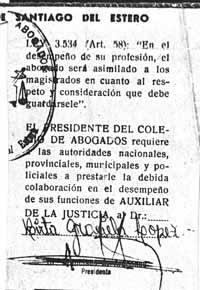 DE SANTIAGO DEL ESTERO
3.534 (Art. 58): "En el
desempeño de su profesión, el
abogado será asimilado a los
magistrados en cuanto al res-
peto y consideración que debe
guardársele".
EL PRESIDENTE DEL COLE-
GIO DE ABOGADOS requiere
a las autoridades nacionales,
provinciales, municipales y po-
liciales a prestarle la debida
colaboración en el desempeño
de sus funciones de AUXILIAR
DE LA JUSTICIA, al Dr.:
Lopez
Presidente